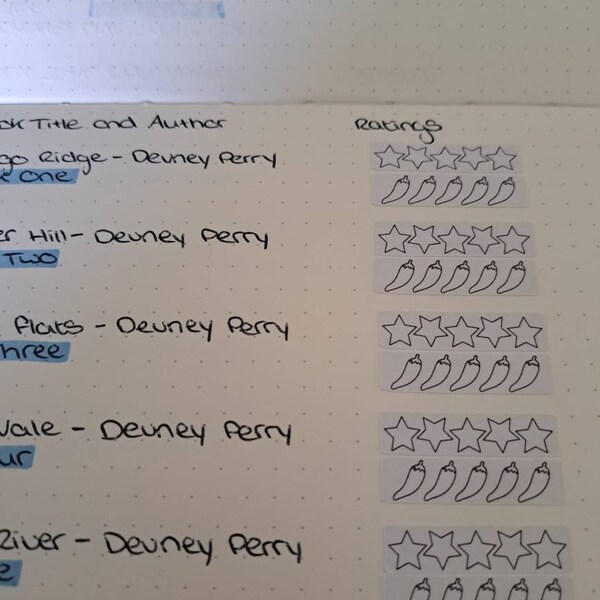 ok Title and Author
Ratings
go Ridge - Devney Perry
One
er Hill - Devney Perry
Two
Flats - Devney Perry
hree
Vale - Devney Perry
ur
River - Devney Perry
e